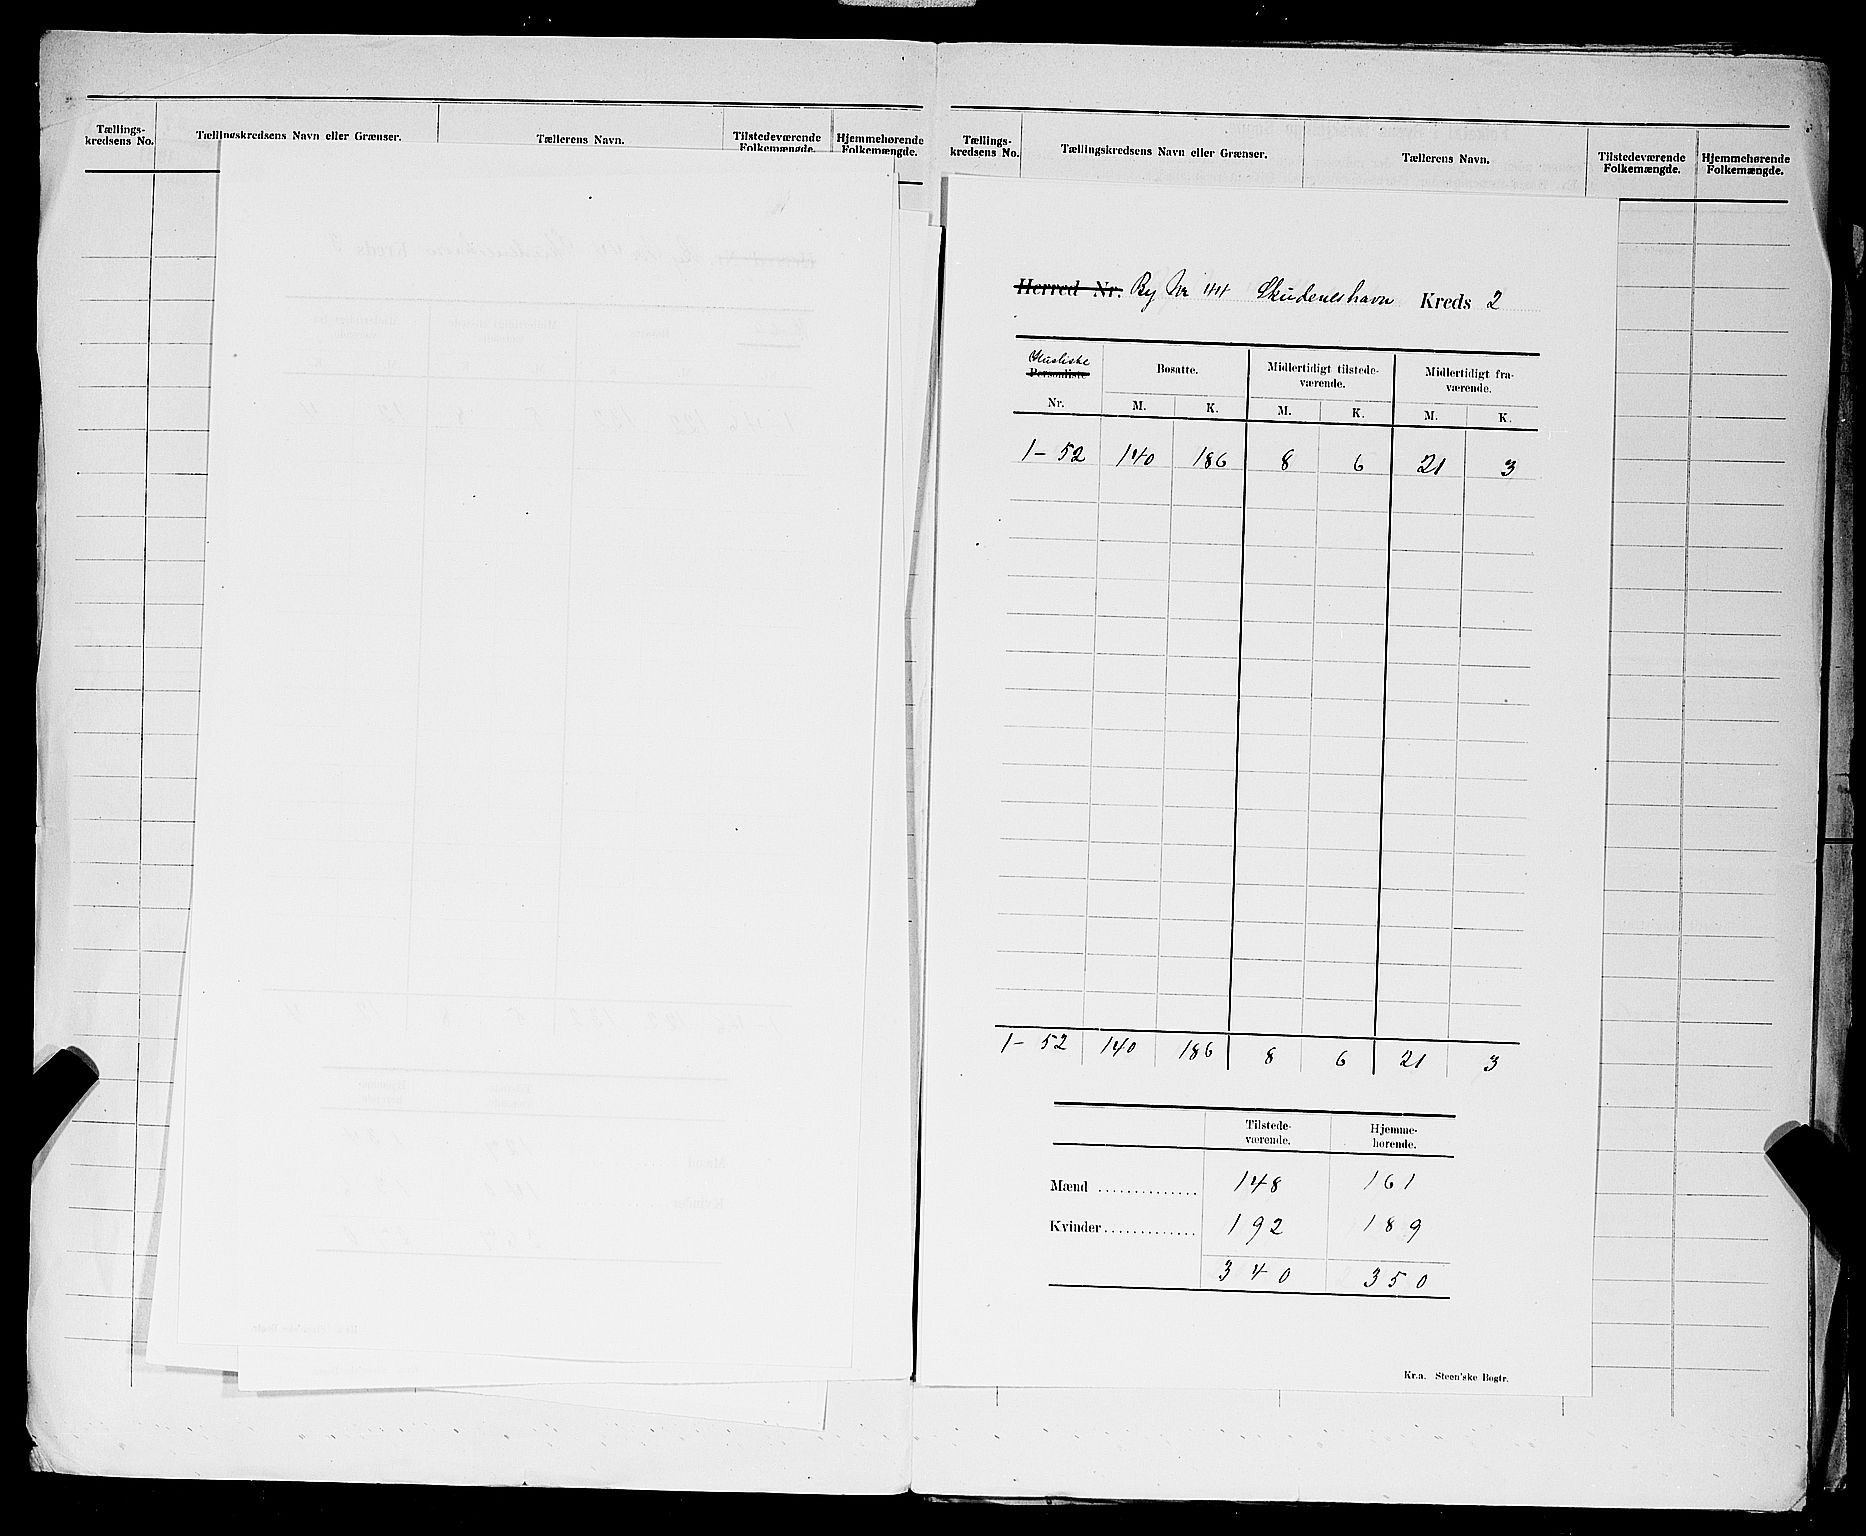 Tællings-
kredsens No.
Tællingskredsens Navn eller Grænser.
Tællerens Navn.
Tilstedeværende
Folkemængde.
Hjemmehørende
Folkemængde.
Tællings-
kredsens No.
Tællingskredsens Navn eller Grænser.
Tællerens Navn.
Tilstedeværende
Folkemængde.
Hjemmehørende
Folkemængde.
Herred Nr. By No 44 Skudeneshavn Kreds 2
Husliste
Personliste
Nr.
Bosatte.
M. K.
Midlertidigt tilstede-
værende.
M. K.
Midlertidigt fra-
værende.
M. K.
1-52 140 186 8 6 21 3
1-52 140 186 8 6 21 3
Tilstede-
værende.
Hjemme-
hørende.
Mænd .............. 148 161
Kvinder............. 192 189
340 350
Kr.a. Steen'ske Bogtr.